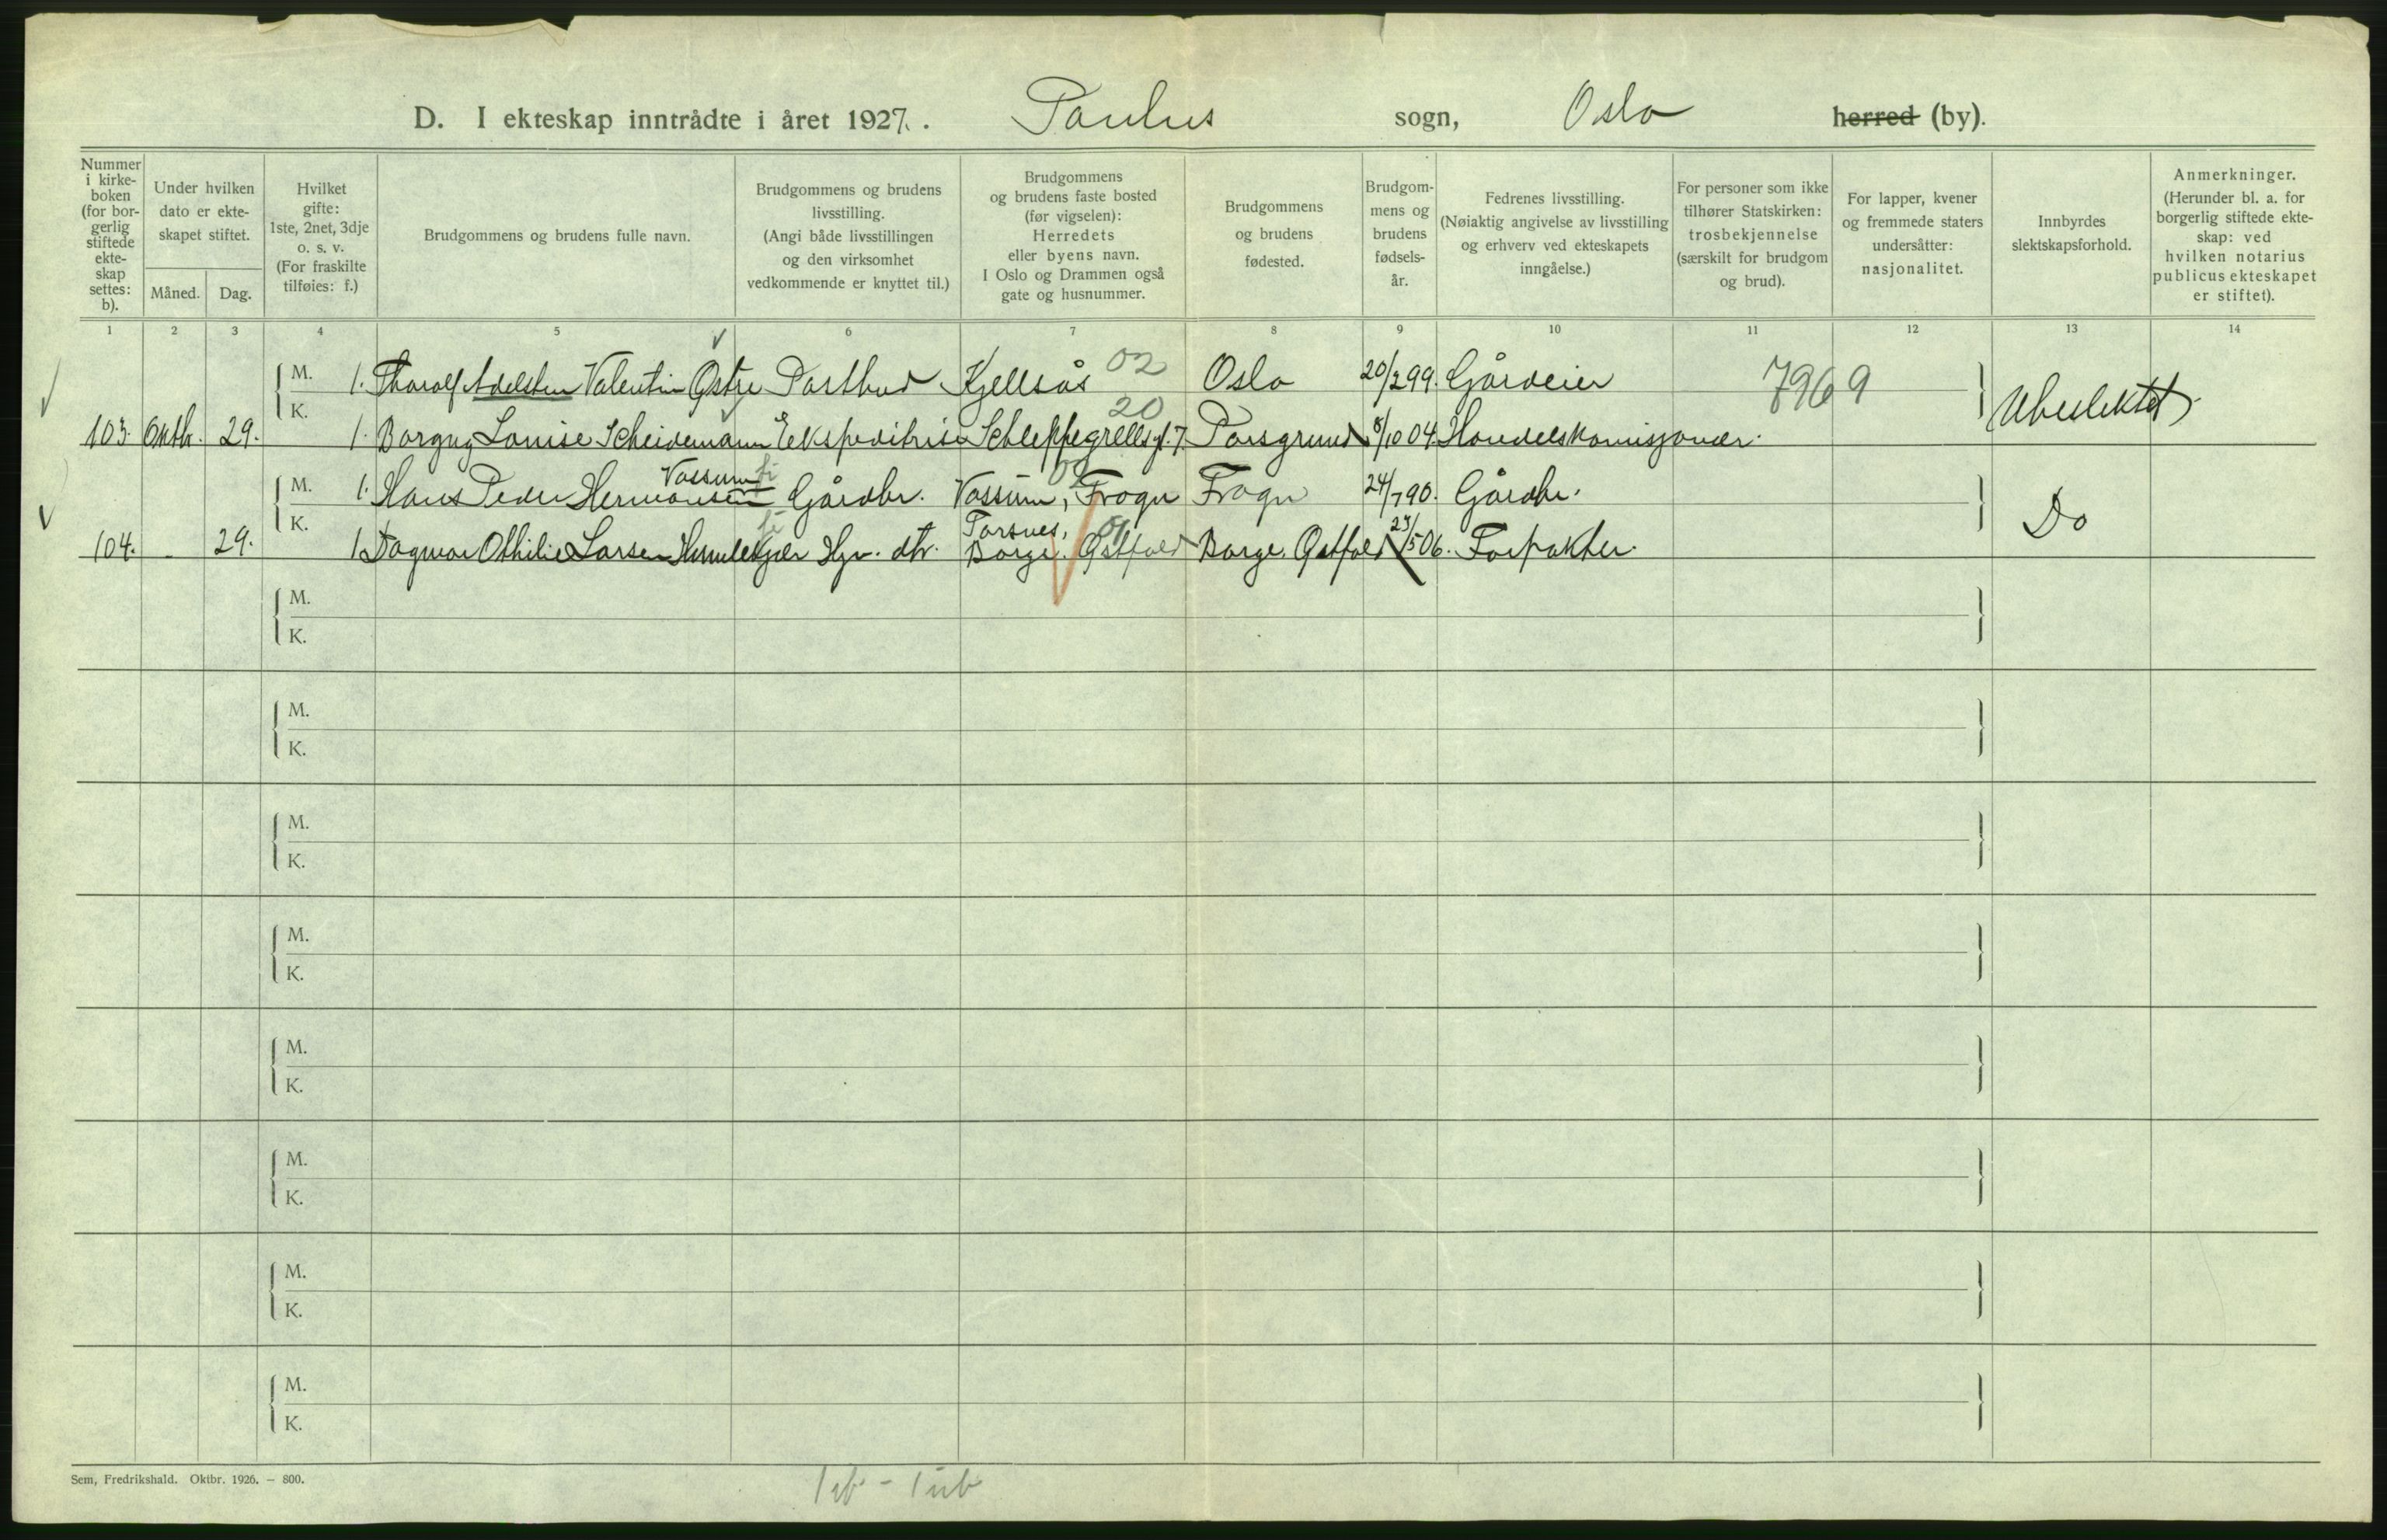 D. I ekteskap inntrådte i året 1927. Paulus sogn, Oslo herred (by).
Nummer i kirke- boken (for bor- gerlig stiftede ekte- skap settes: b).
Under hvilken dato er ekte- skapet stiftet.
Måned. Dag.
Hvilket gifte: 1ste, 2net, 3dje o. s. v. (For fraskilte tilføies: f.)
Brudgommens og brudens fulle navn.
Brudgommens og brudens livsstilling. (Angi både livsstillingen og den virksomhet vedkommende er knyttet til.)
Brudgommens og brudens faste bosted (før vigselen): Herredets eller byens navn. I Oslo og Drammen også gate og husnummer.
Brudgommens og brudens fødested.
Brudgom- mens og brudens fødsels- år.
Fedrenes livsstilling. (Nøiaktig angivelse av livsstilling og erhverv ved ekteskapets inngåelse.)
For personer som ikke tilhører Statskirken: trosbekjennelse (særskilt for brudgom og brud).
For lapper, kvener og fremmede staters undersåtter: nasjonalitet.
Innbyrdes slektskapsforhold.
Anmerkninger. (Herunder bl. a. for borgerlig stiftede ekte- skap: ved hvilken notarius publicus ekteskapet er stiftet).
1 2 3 4 5 6 7 8 9 10 11 12 13 14
M. 1. Thorolf Adelsten Valentin Østre Postbud Kjellsås 02 Oslo 20/2 99. Gårdeier 7969
103. Oktbr. 29. K. 1. Borgny Louise Scheidemann Ekspeditrise Schleppegrellsgt. 7. 20 Porsgrund 8/10 04. Handelskomisjonær. Ubeslektet
M. 1. Hans Peder Hermansen Vassum Gårdbr. Vassum, Frogn 02 Frogn 24/7 90. Gårdbr.
104. - 29. K. 1. Dagmar Othilie Larsen Hj. dtr. Torsnes, Borge. Østfold 01 Borge, Østfold 23/5 06. Forpakter. Do
M.
K.
M.
K.
M.
K.
M.
K.
M.
K.
M.
K.
M.
K.
M.
K.
Sem, Fredrikshald. Oktbr. 1926. — 800.